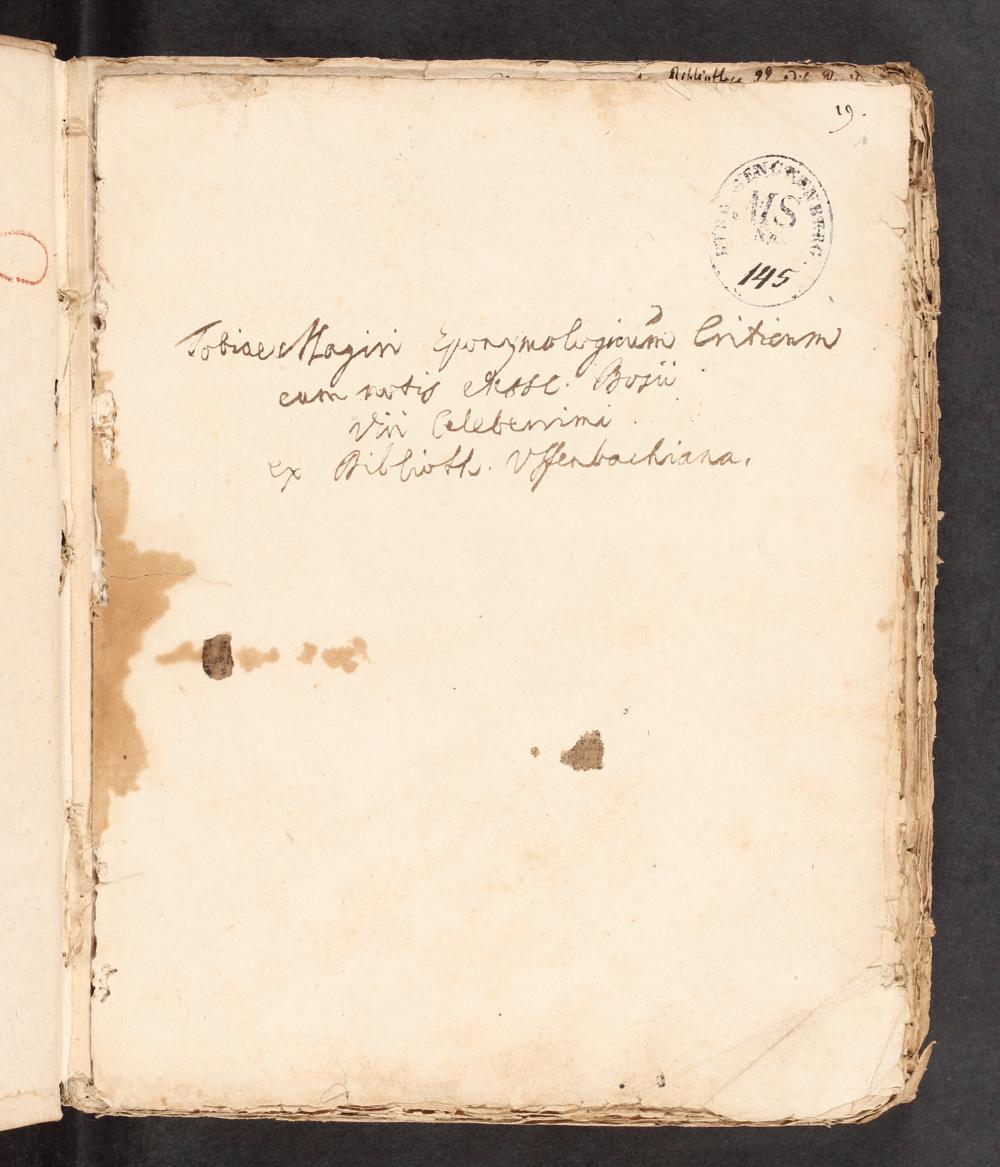 19.
BYBL. SENCKENBERG.
MS
No.
145
Tobiae Magiri Eponymologicum Criticum
cum notis Bosii
Viri Celeberrimi
ex Biblioth. Uffenbachiana.